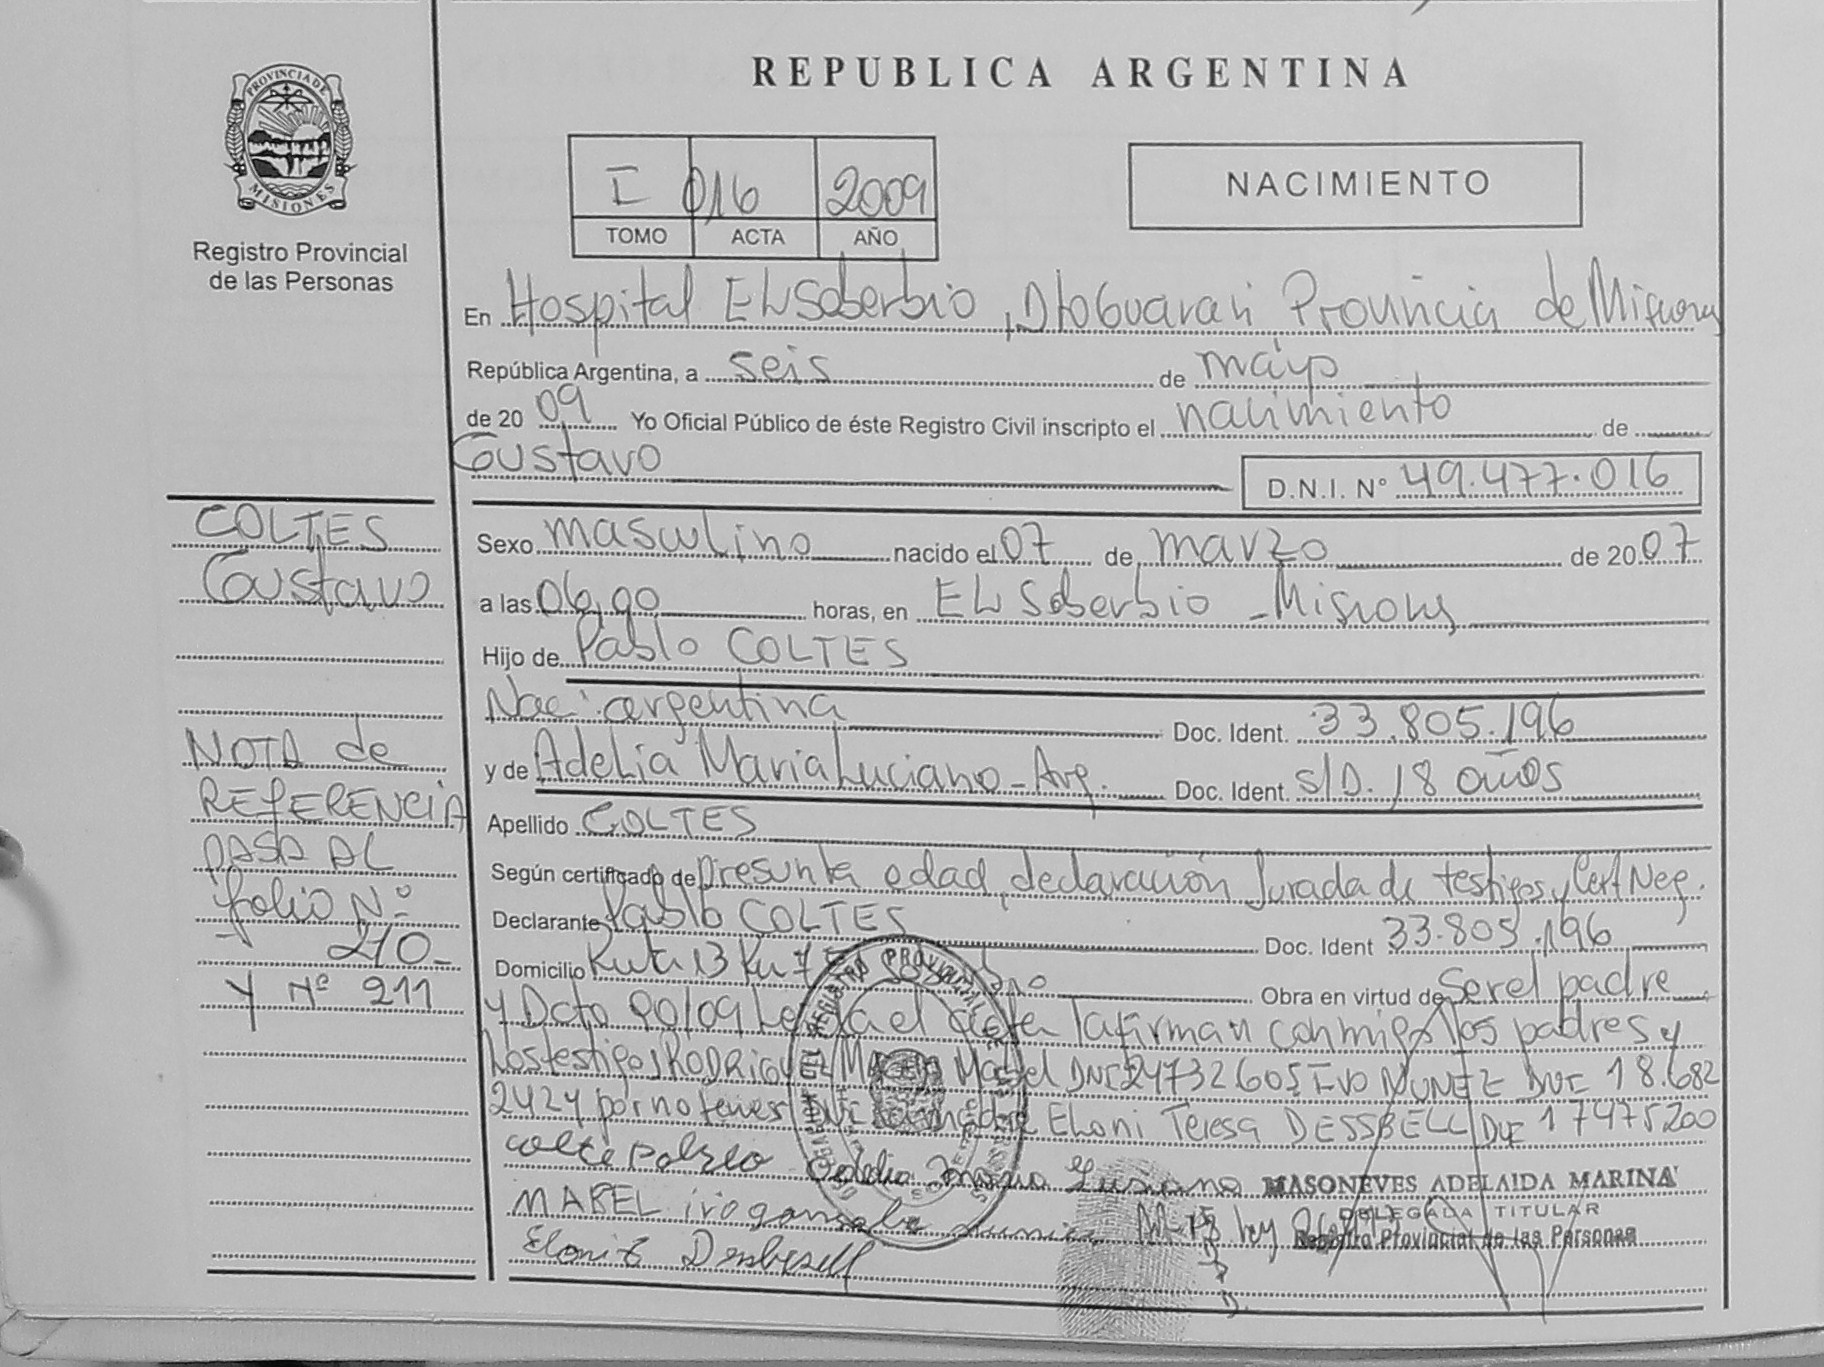 PROVINCIA DE
MISIONES
Registro Provincial
de las Personas
REPUBLICA ARGENTINA
I 016 2009
TOMO ACTA AÑO
NACIMIENTO
En Hospital El Soberbio, Dto Guarani Provincia de Misiones
República Argentina, a seis de mayo
de 20 09 Yo Oficial Público de éste Registro Civil inscripto el nacimiento de
Gustavo
D.N.I. N° 49.477.016
COLTES
Gustavo
NOTA de
REFERENCIA
PASA AL
folio N°
210-
Y N° 211
Sexo masculino nacido el 07 de marzo de 20 07
a las 06,00 horas, en El Soberbio - Misiones
Hijo de Pablo COLTES
Nac: argentina Doc. Ident. 33.805.196
y de Adelia Maria Luciano - Arg. Doc. Ident. S/D. 18 años
Apellido COLTES
Según certificado de presunta edad, declaración Jurada de testigos y Cert Neg.
Declarante Pablo COLTES Doc. Ident 33.805.196
Domicilio Ruta 13 Km Obra en virtud de Ser el padre
y Dcto 90/09 Leida el acta la firman conmigo los padres y
los testigos RODRIGUEZ Mabel DNI 24732605 IVO NUNEZ DNI 18.682
2424 por no tener DNI la madre Eloni Teresa DESSBELL DNI 17475200
MASONEVES ADELAIDA MARINA
MABEL
DELEGADA TITULAR
Registro Provincial de las Personas